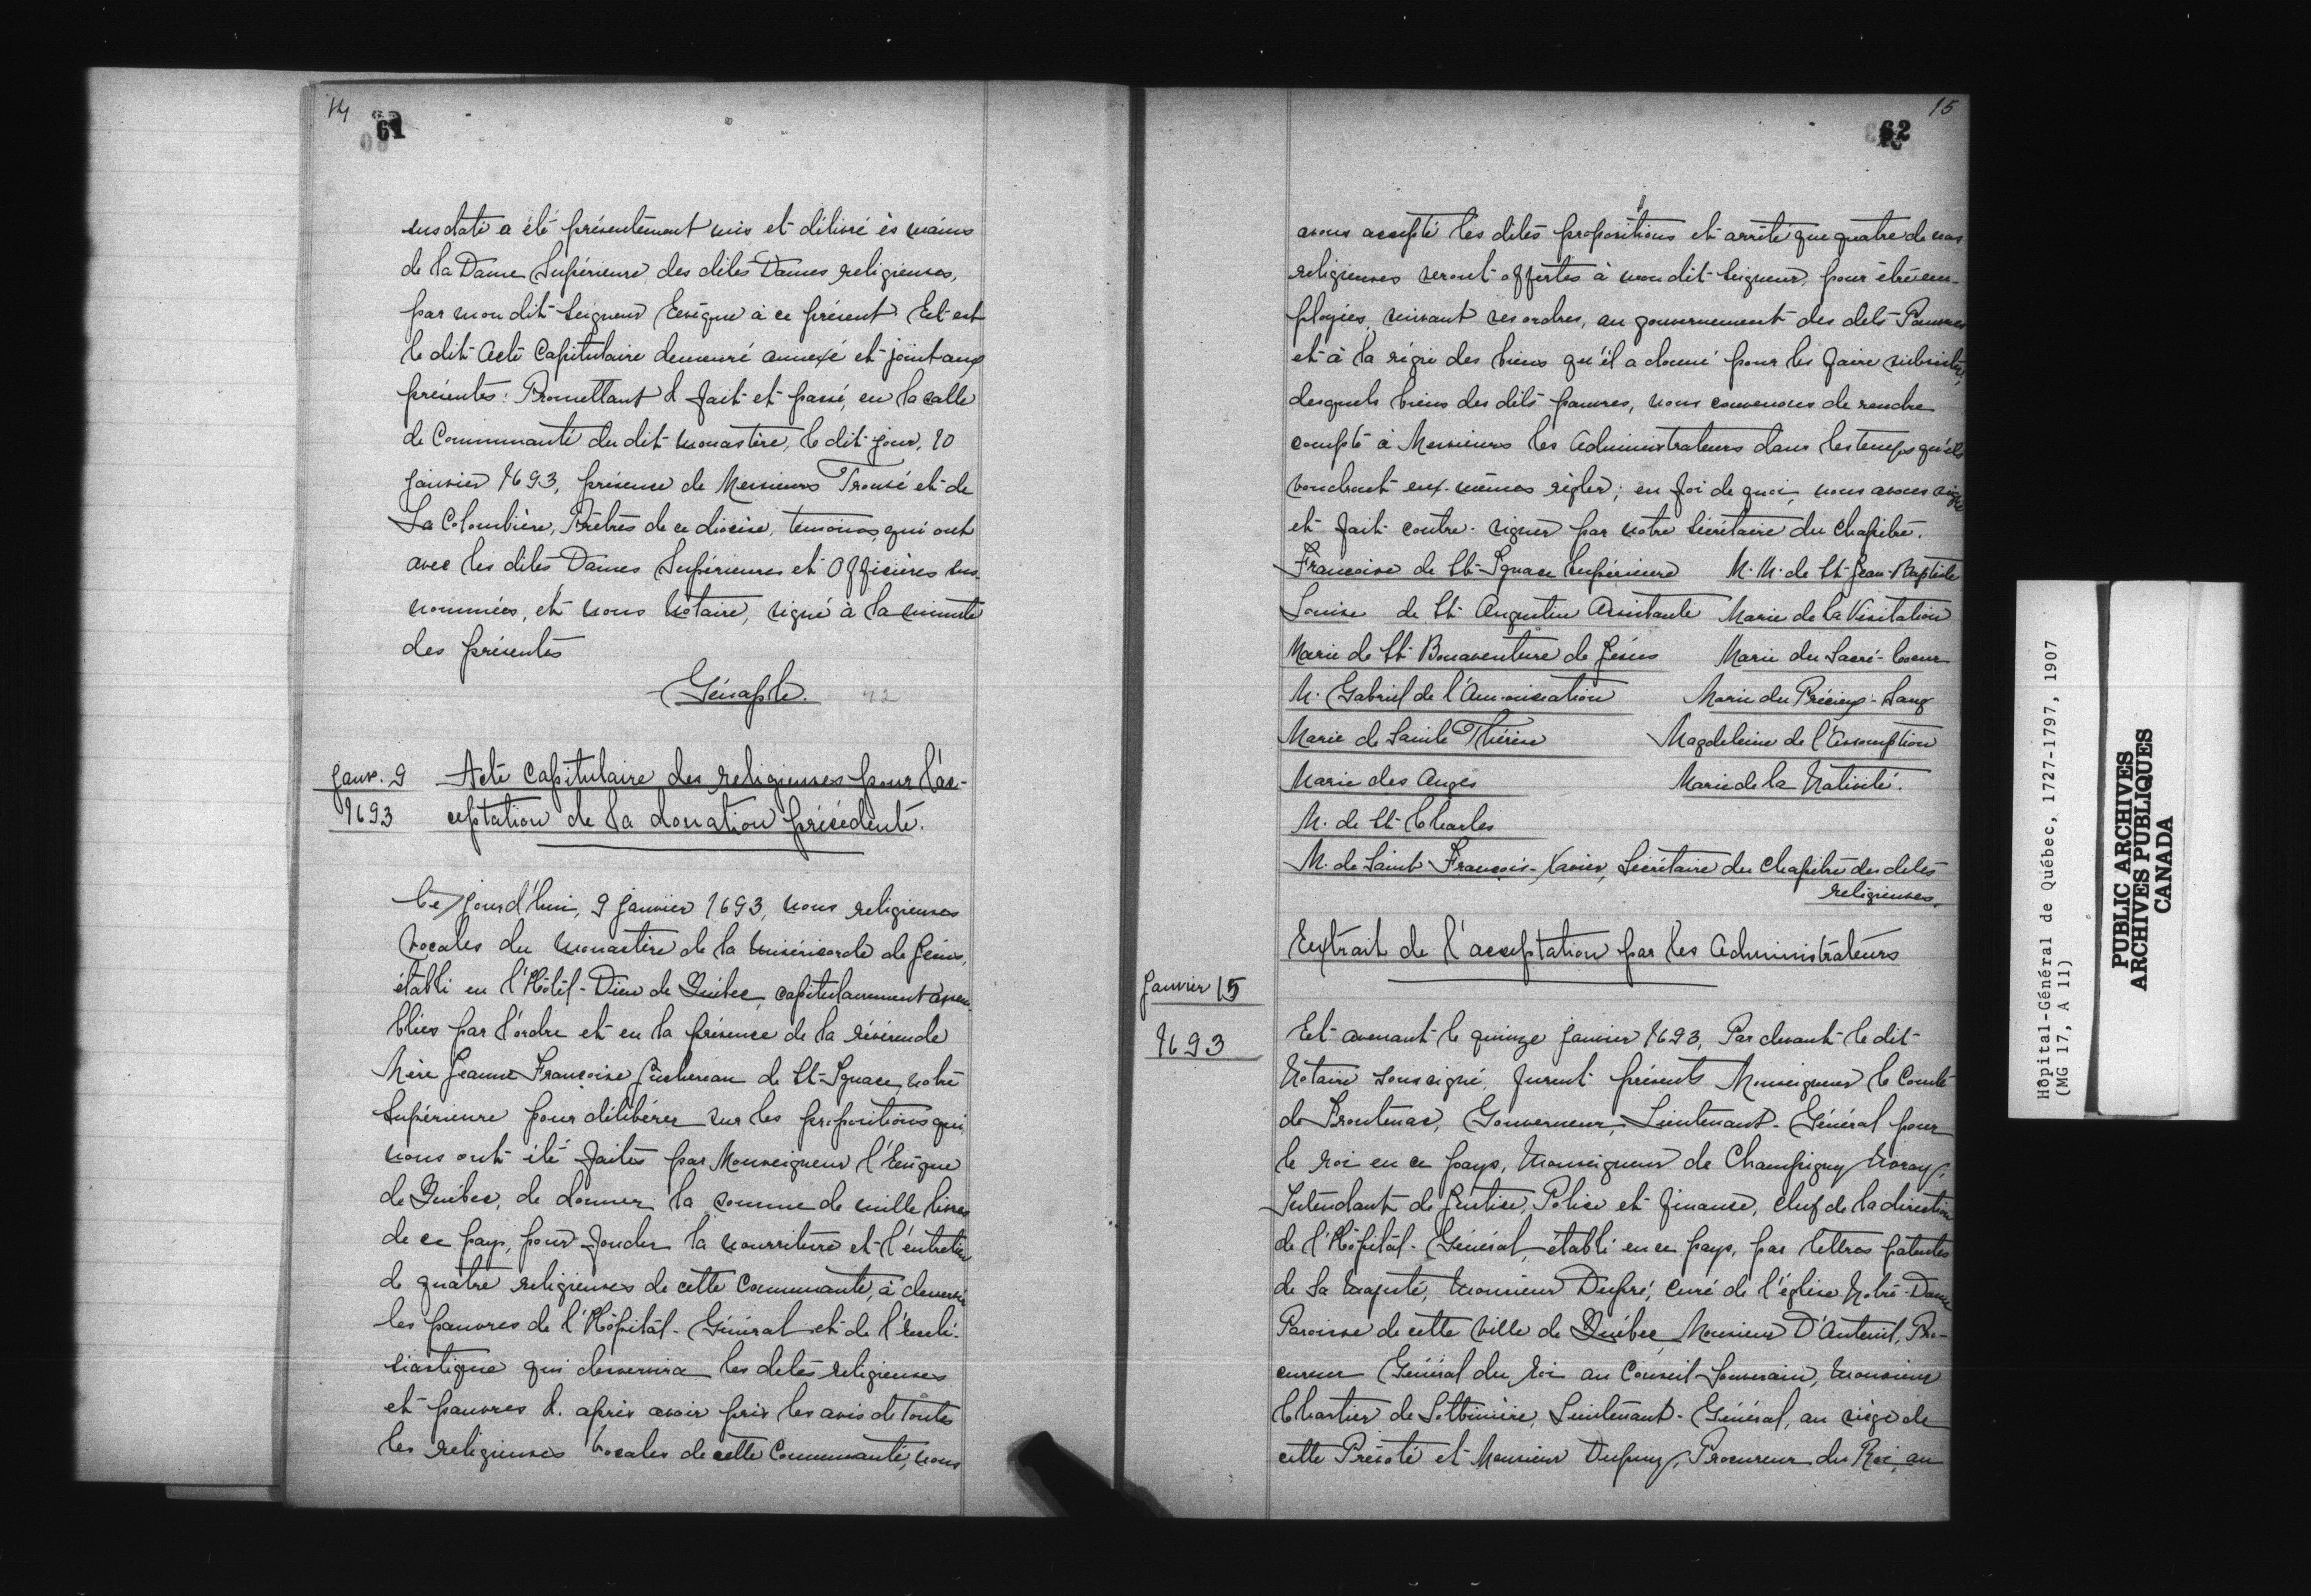 14
61
susdate a été présentement mis et délivré ès mains
de la Dame Supérieure des dites Dames religieuses,
par mon dit Seigneur Evêque à ce présent Et est
le dit Acte Capitulaire demeuré annexé et joint aux
présentes: Promettant & fait et passé, en la salle
de Communauté du dit monastère, le dit jour, 10
janvier 1693, présence de Messieurs Trouvé et de
La Colombière, Prêtres de ce diocèse, temoins qui ont
avec les dites Dames Supérieures et Officières sus-
nommées, et nous Notaire, signé à la minute
des présentes
Génaple.
Janv. 9
1693
Acte Capitulaire des religieuses pour l'ac-
ceptation de la donation précédente.
Ce jourd'hui, 9 janvier 1693, nous religieuses
vocales du monastère de la miséricorde de Jésus,
établi en l'Hôtel-Dieu de Québec, capitulairement assem
blées par l'ordre et en la présence de la révérende
Mère Jeanne Françoise Juchereau de St-Ignace, notre
Supérieure pour délibérer sur les propositions qui
nous ont été faites par Monseigneur l'Evêque
de Québec, de donner la somme de mille livres
de ce pays, pour fonder la nourriture et l'entretien
de quatre religieuses de cette Communauté, à desservir
les pauvres de l'Hôpital-Général et de l'ecclé-
siastique qui desservira les dites religieuses
et pauvres &. après avoir pris les avis de toutes
les religieuses vocales de cette Communauté, nous
15
62
avons accepté les dites propositions et arrêté que quatre de nos
religieuses seront offertes à mon dit Seigneur, pour être em-
ployées, suivant ses ordres, au gouvernement des dits Pauvres
et à la régie des biens qu'il a donné pour les faire subsister,
desquels biens des dits pauvres, nous convenons de rendre
compte à Messieurs les Administrateurs dans les temps qu'ils
voudront eux-mêmes régler; en foi de quoi, nous avons signé
et fait contre-signer par notre Sécrétaire du Chapitre.
Françoise de St-Ignace Supérieure M. M. de St-Jean-Baptiste
Louise de St Augustin Assistante Marie de la Visitation
Marie de St-Bonaventure de Jésus Marie du Sacré-Coeur
M. Gabriel de l'Annonciation Marie du Précieux-Sang
Marie de Sainte Thérèse Magdeleine de l'Assomption
Marie des Anges Marie de la Nativité.
M. de St-Charles
M. de Saint François-Xavier, Sécrétaire du Chapitre des dites
religieuses.
Extrait de l'acceptation par les Administrateurs
Janvier 15
1693
Et avenant le quinze janvier 1693, Par devant le dit
Notaire soussigné, furent présents Monseigneur le Comte
de Frontenac, Gouverneur, Lieutenant-Général pour
le roi en ce pays, Monseigneur de Champigny Noray,
Intendant de Justice, Police et finance, chef de la direction
de l'Hôpital-Général, établi en ce pays, par lettres patentes
de Sa Majesté, Monsieur Dupré, curé de l'église Notre-Dame
Paroisse de cette ville de Québec, Monsieur D'Auteuil, Pro-
cureur Général du roi au Conseil Souverain, Monsieur
Chartier de Lotbinière, Lieutenant-Général, au siège de
cette Prévoté et Monsieur Dupuy, Procureur du Roi, au
Hôpital-Général de Québec, 1727-1797, 1907
(MG 17, A 11)
PUBLIC ARCHIVES
ARCHIVES PUBLIQUES
CANADA